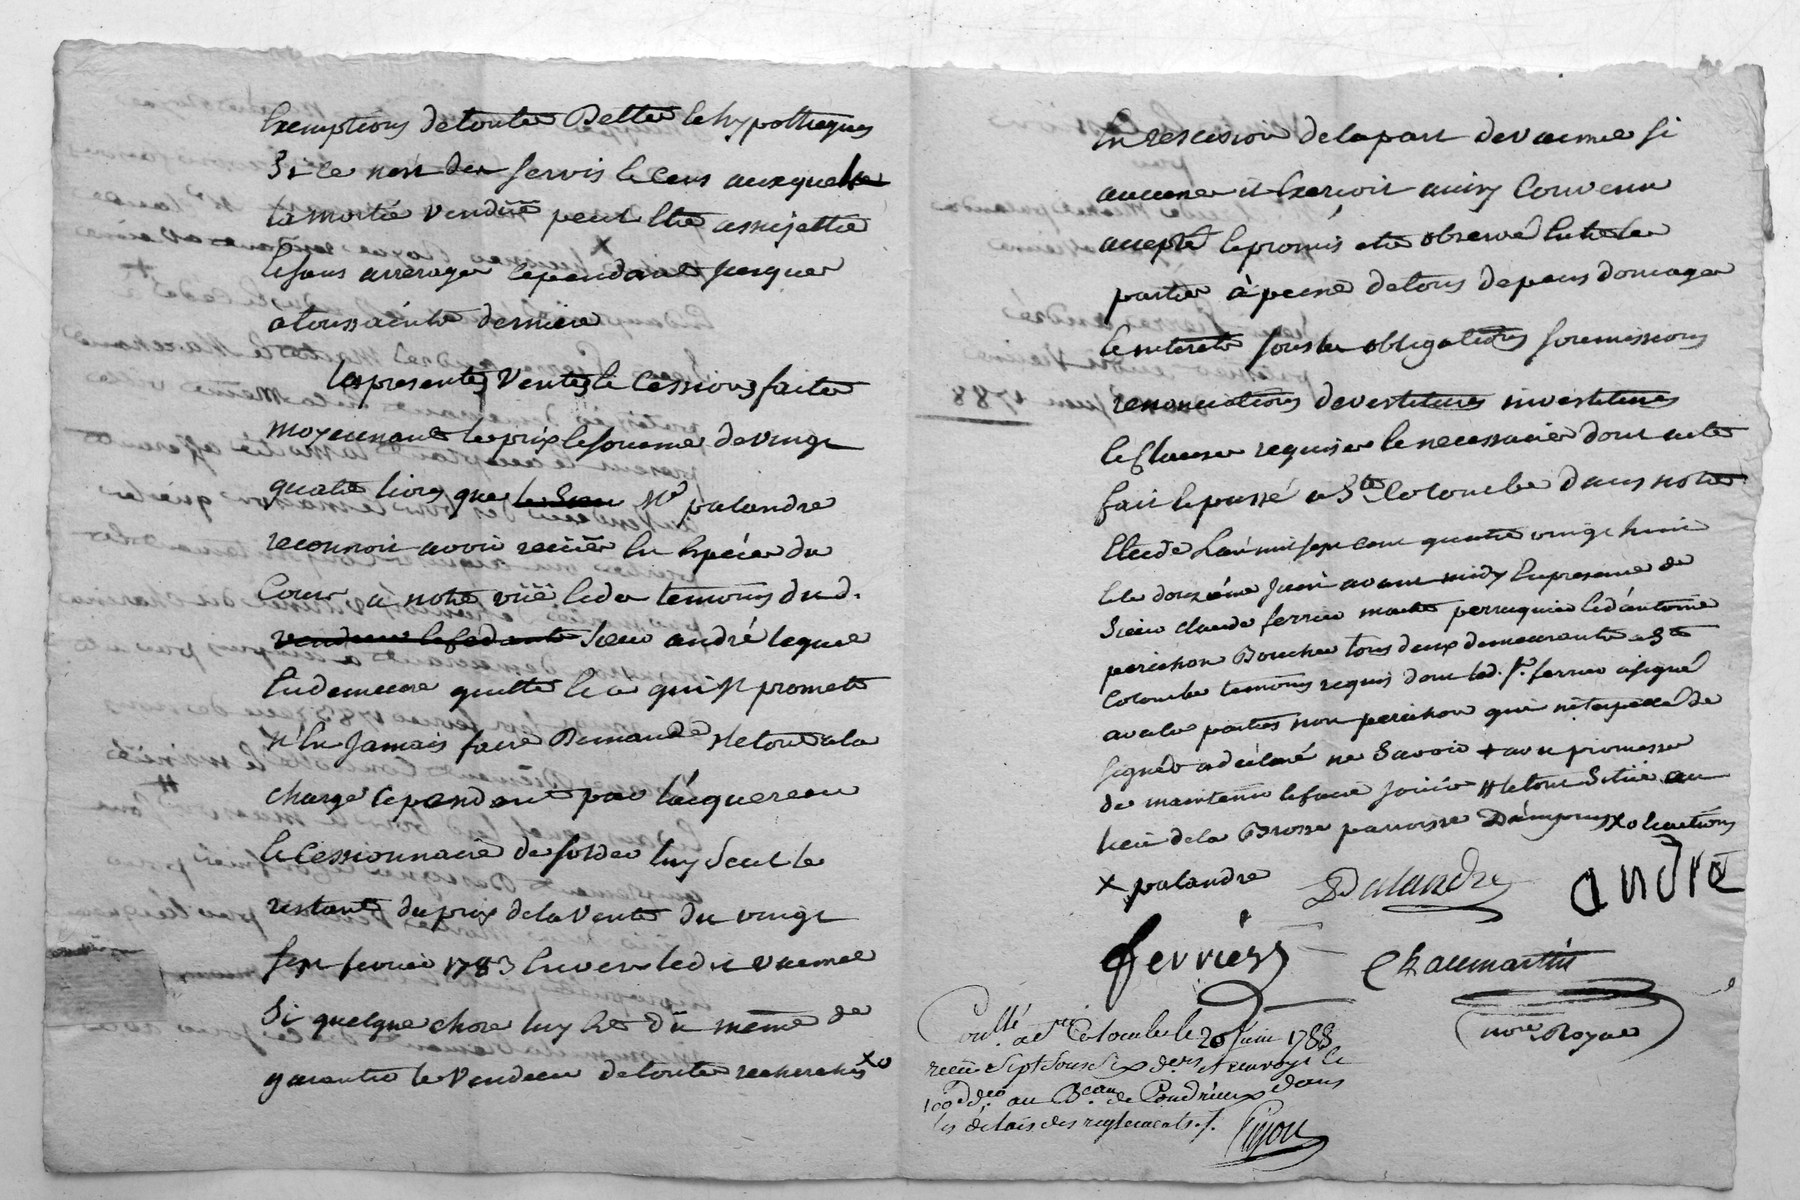 Exemptions de toutes Dettes & hypotheques
Si ce n'est des servis & cens auxquels
la moitié vendüe peut être assujettie
& sans arrerages cependant jusques
a toussaints derniere
Les presentes ventes & Cessions faites
moyennant le prix & somme de vingt
quatre livres que le Sieur Me palandre
reconnoit avoir reçües en Espéces du
Cours a notre vüë & des temoins dud.
vendeur & cedant Sieur andré lequel
En demeure quitte & a qui il promet
N'En Jamais faire Demande Le tout a la
charge cependant par l'acquereur
& Cessionnaire de solder luy seul le
restant du prix de la vente du vingt
sept fevrier 1783 Envers ledit
Si quelque chose luy Est Dû même de
garantir le Vendeur de toutes recherches xo
En rescision de la part de
aucune il Exercoit ainsy Convenu
accepté & promis être observé Entre les
parties à peine de tous depens domages
& interets sous les obligations soumissions
renonciations devestitures investitures
& Clauses requises & necessaires dont acte
fait & passé a Ste Colombe dans notre
Etude L'an mil sept cent quatre vingt huit
& le douzième Juin avant midy En presence de
Sieur claude ferrier maitre perruquier & d'antoine
perichon Boucher tous deux demeurants a Ste
Colombe temoins requis dont led. Sr. ferrier a signé
avec les parties non perichon qui interpellé de
signer a déclaré ne Savoir + avec promesse
de maintenir & faire Jouir # le tout Situé au
lieu de la Brosse paroisse D'ampuis xo & actions
x palandre Palandre andré
ferrier Chaumartin
nore Royal
Conllé. a Ste Colombe le 20 Juin 1788
reçu Sept sous Six ders. & renvoyé le
100e d. au Beau. de Condrieux dans
les délais des reglements ./.